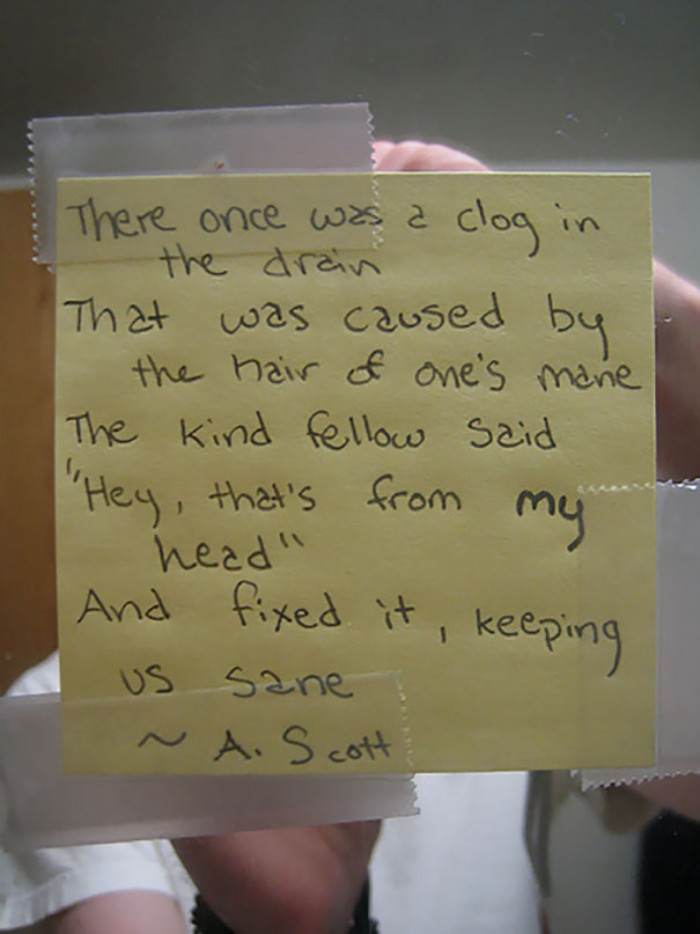 There once was a clog in
the drain
That was caused by
the hair of one's mane
The kind fellow said
"Hey, that's from my
head"
And fixed it, keeping
us sane
~ A. Scott